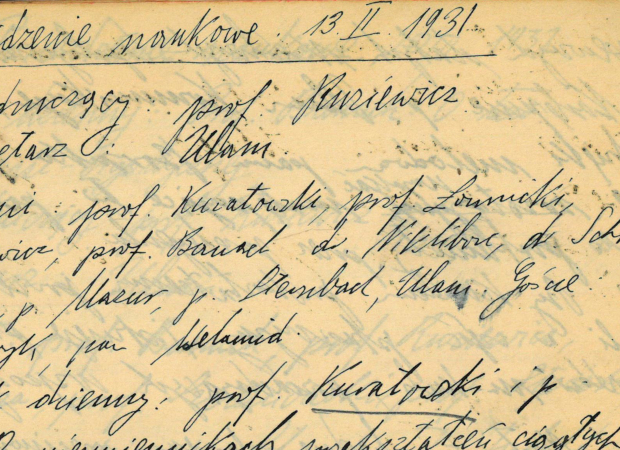 dzenie naukowe. 13 II. 1931
dniczący: prof. Ruziewicz
etarz: Ulam.
ni: prof. Kuratowski, prof. Łomnicki,
wicz, prof. Banach dr. Nikliborc, dr Sch
, p. Mazur, p. Sternbach, Ulam. Goście:
pan Melamid.
k dzienny: prof. Kuratowski i p
O niezmiennikach przekształceń ciągłych